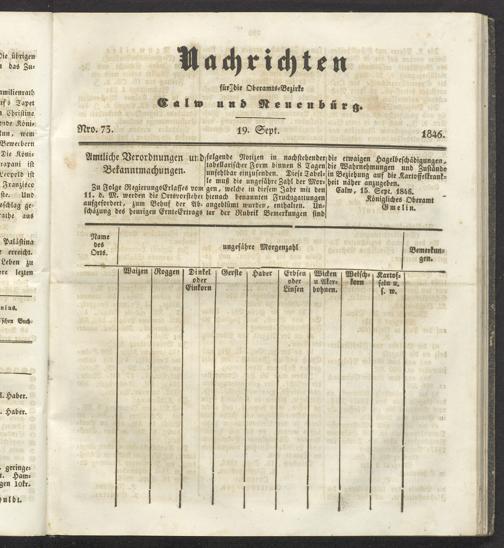 Die übrigen
das Zu-
Familienrath
Tapet
Christine
Köni-
wem
Bewerbern
Die Köni-
Leopold ist
Franzisco
Und
Palästina
erreicht.
Leben zu
letzten
schen Buch-
Haber.
Haber.
geringe-
Ham-
gen 10kr.
Nachrichten
für die Oberamts-Bezirke
Calw und Neuenbürg.
Nro. 73. 19. Sept. 1846.
Amtliche Verordnungen und
Bekanntmachungen.
Zu Folge Regierungs-Erlasses vom
11. d. M. werden die Ortsvorsteher
aufgefordert, zum Behuf der Ab-
schäzung des heurigen Ernte-Ertrags
folgende Notizen in nachstehender
tabellarischer Form binnen 8 Tagen
unfehlbar einzusenden. Diese Tabel-
le muß die ungefähre Zahl der Mor-
gen, welche in diesem Jahr mit den
hienach benannten Fruchtgattungen
angeblümt wurden, enthalten. Un-
ter der Rubrik Bemerkungen sind
die etwaigen Hagelbeschädigungen,
die Wahrnehmungen und Zustände
in Beziehung auf die Kartoffelkrank-
heit näher anzugeben.
Calw, 15. Sept. 1846.
Königliches Oberamt
Gmelin.
Name
des
Orts.
ungefähre Morgenzahl
Bemerkun-
gen.
Waizen
Roggen
Dinkel
oder
Einkorn
Gerste
Haber
Erbsen
oder
Linsen
Wicken
u. Aker-
bohnen.
Welsch-
korn
Kartof-
feln u.
s. w.